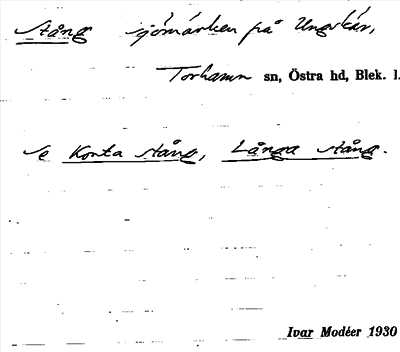 Stång sjömärken på Ungskär,
Torhamn sn, Östra hd, Blek. l.
Se Korta stång, Långa stång.
Ivar Modéer 1930